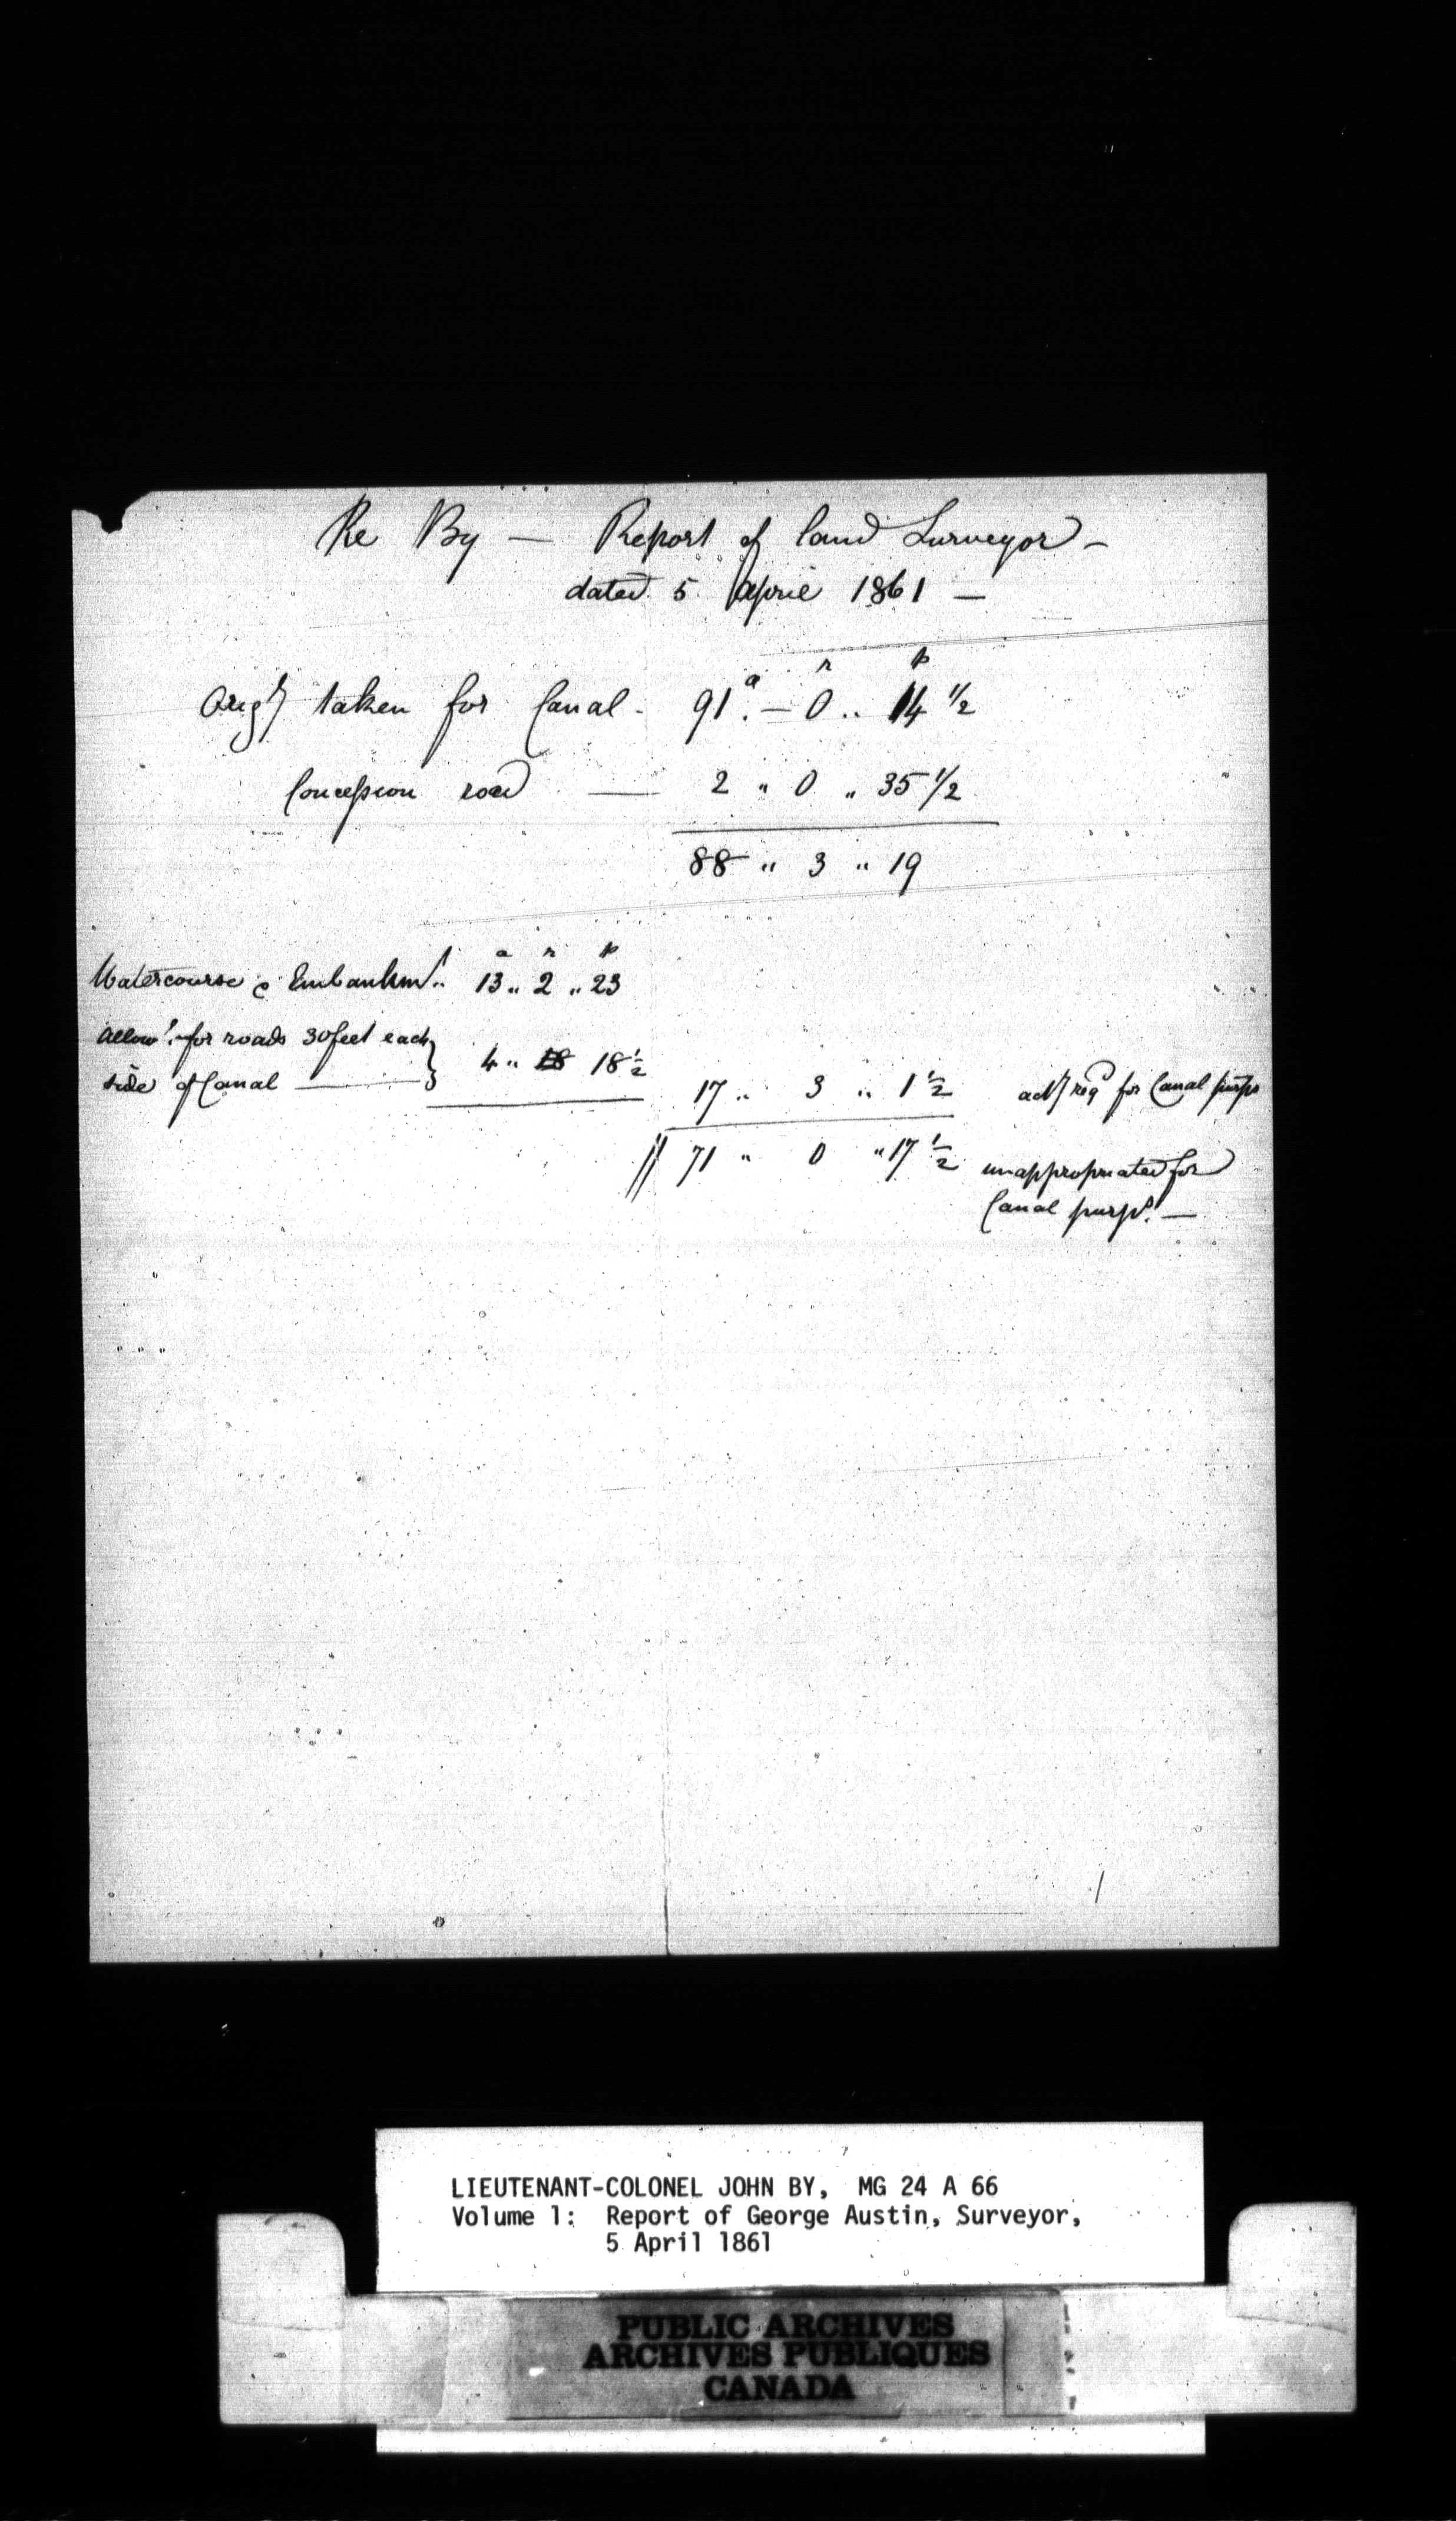 Re By — Report of land Surveyor —
dated 5 April 1861 —
a r p
Origy taken for Canal - 91 . — 0 .. 14 1/2
Concession road — 2 " 0 " 35 1/2
88 " 3 " 19
a r p
Watercourse & Embankmt .. 13 .. 2 .. 23
Allowe for roads 30 feet each
side of Canal — } 4 .. 18 18 1/2
17 .. 3 .. 1 1/2 acty reqd for Canal purps
71 " 0 " 17 1/2 unappropriated for
Canal purps. —
LIEUTENANT-COLONEL JOHN BY, MG 24 A 66
Volume 1: Report of George Austin, Surveyor,
5 April 1861
PUBLIC ARCHIVES
ARCHIVES PUBLIQUES
CANADA